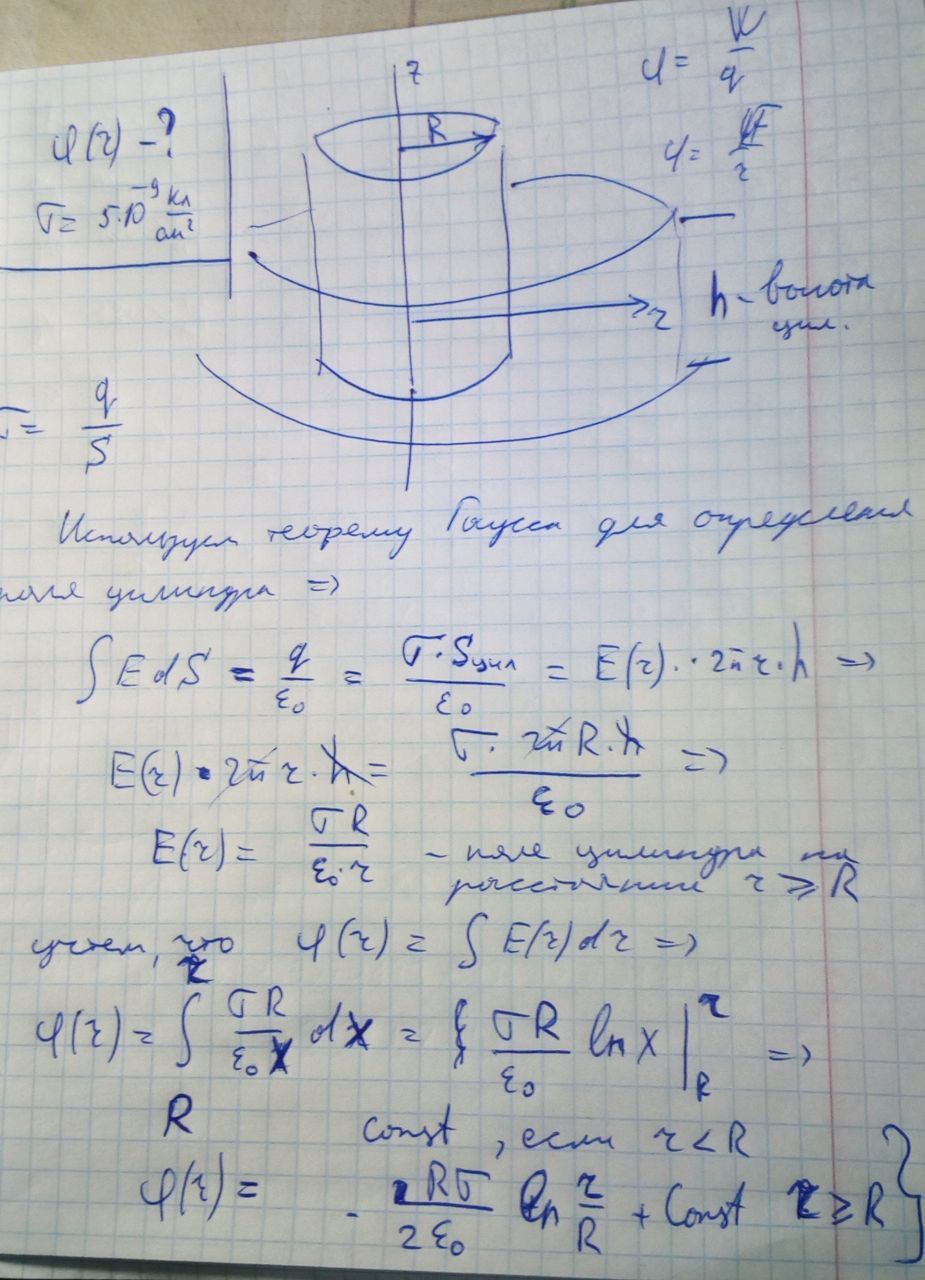 z
φ = W/q
φ(r) - ?
R
σ = 5·10⁻⁹ Кл/см²
r
h - высота
цил.
σ = q/S
Используем теорему Гаусса для определения
поля цилиндра =>
∫ E dS = q/ε₀ = σ·Sцил/ε₀ = E(r)·2πr·h =>
E(r)·2πr·h = σ·2πR·h/ε₀ =>
E(r) = σR/ε₀·r - поле цилиндра на
расстоянии r ≥ R
учтем, что φ(r) = ∫ E(r) dr =>
φ(r) = ∫ᵣR σR/ε₀x dx = σR/ε₀ ln x |ᵣR =>
const, если r < R
φ(r) = - Rσ/2ε₀ ln r/R + Const r ≥ R }